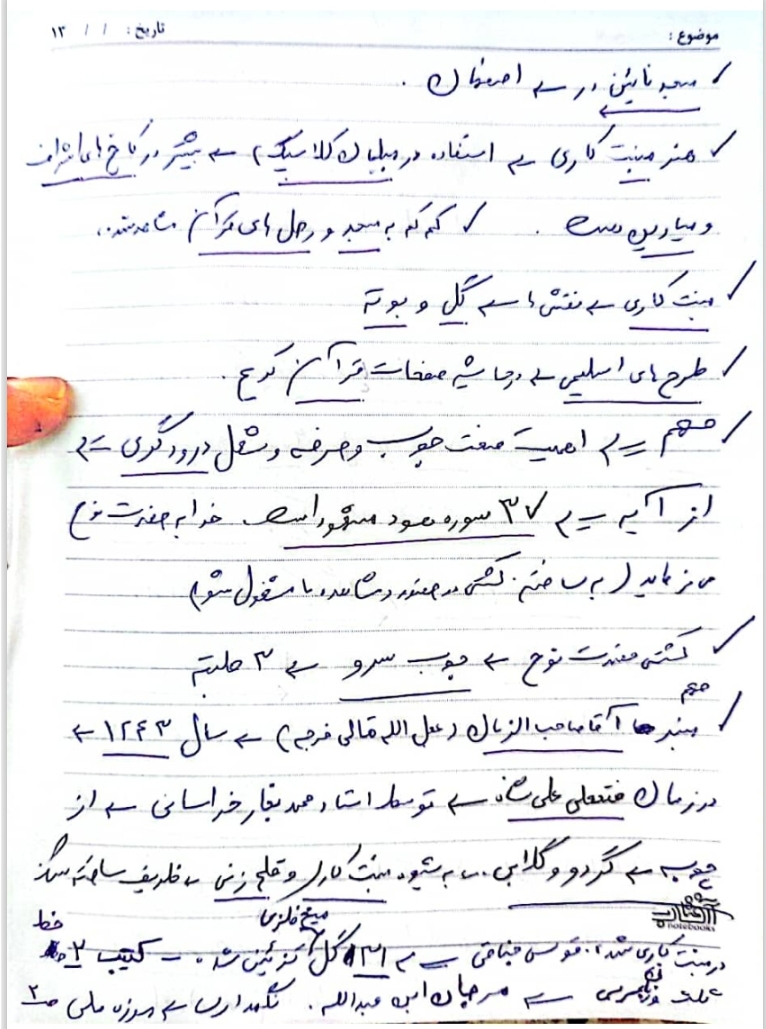 موضوع: تاریخ: / / ۱۳
✓ مسجد نائین در ← اصفهان .
✓ هنر منبت کاری ← استفاده در مبلمان کلاسیک) ← بیشتر در کاخ های اشراف
و ✓ کم کم به مسجد و رحل های قرآن مشاهده شد.
✓ منبت کاری ← نقش ها ← گل و بوته
✓ طرح های اسلیمی ← در حاشیه صفحات قرآن کریم .
✓ مهم ← اهمیت صنعت چوب و حرفه و شغل درودگری ←
از آیه ← ۳۷ سوره هود مشهود است خدا به حضرت نوح
می فرماید ( به ساختن کشتی در حضور و مشاهده ما مشغول شو)
✓ کشتی حضرت نوح ← چوب سرو ← ۳ طبقه
مهم
✓ منبر آقا صاحب الزمان (عجل الله تعالی فرجه) ← سال ۱۲۴۳ ←
در زمان فتحعلی شاه ← توسط استاد محمد خراسانی ← از
چوب ← گردو و گلابی ← به شیوه منبت کاری و قلم زنی ظریف ساخته
آفتاب
notebooks
میخ فلزی خط
در منبت کاری شده ← گل تزئین شده - کتیبه ۲
← مرجان ابن عبدالله . نگهداری ← موزه ملی